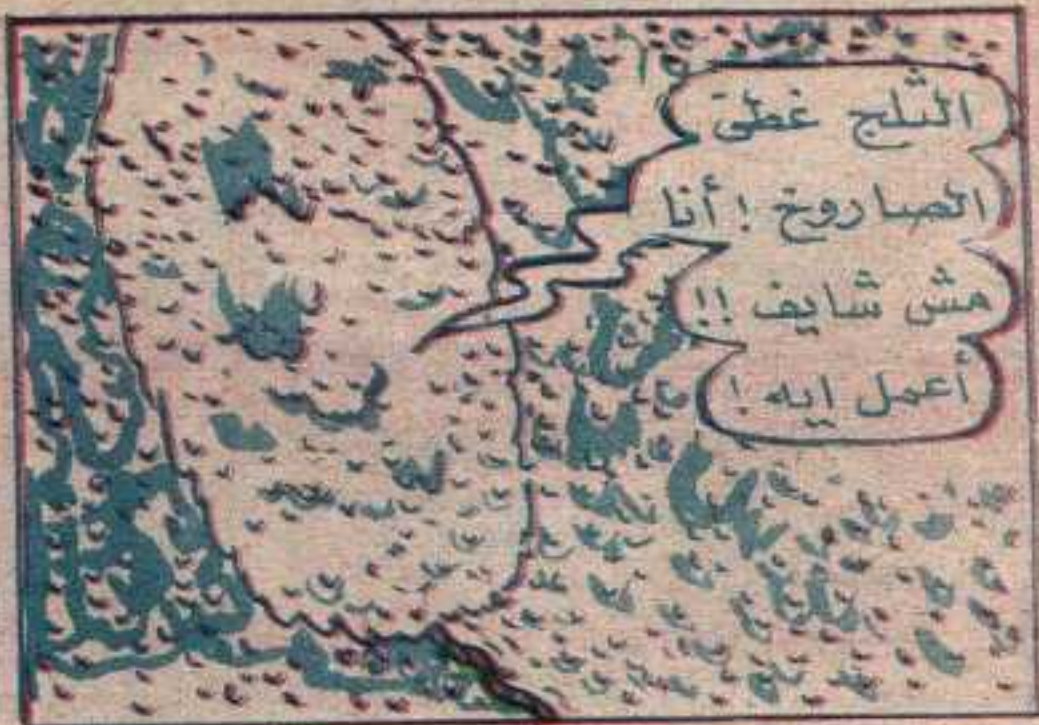 الثلج غطى
الصاروخ ! أنا
مش شايف !!
أعمل ايه !